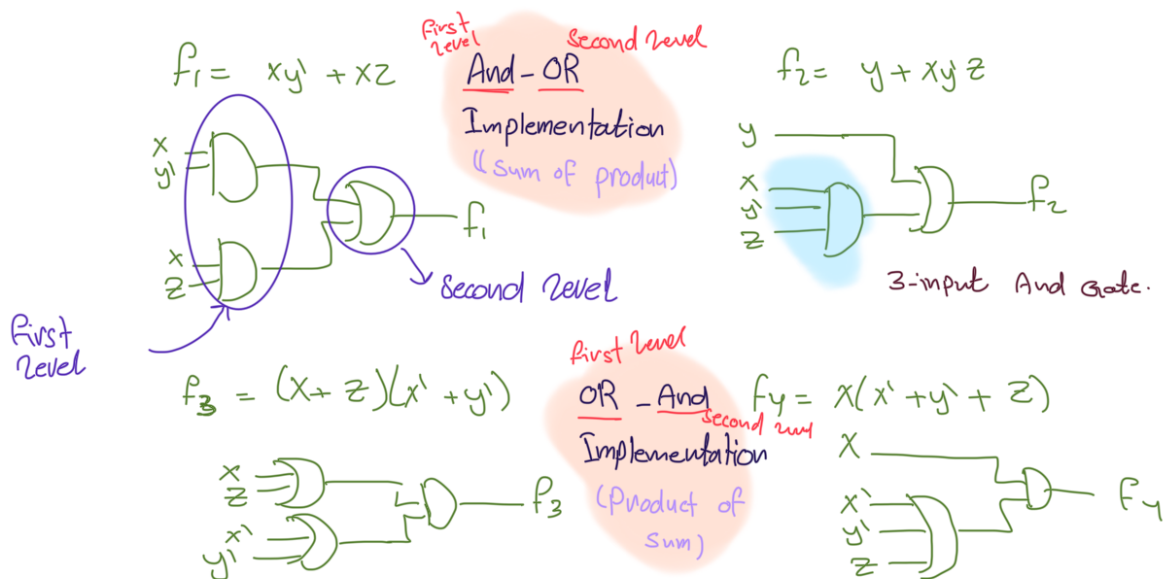 f₁ = xy' + xz
first level
second level
And - OR
Implementation
(sum of product)
x
y'
x
z
f₁
second level
first level
f₂ = y + xy'z
y
x
y'
z
f₂
3-input And Gate.
f₃ = (x + z)(x' + y')
first level
OR - And
second level
Implementation
(Product of sum)
x
z
x'
y'
f₃
fy = x(x' + y' + z)
x
x'
y'
z
fy